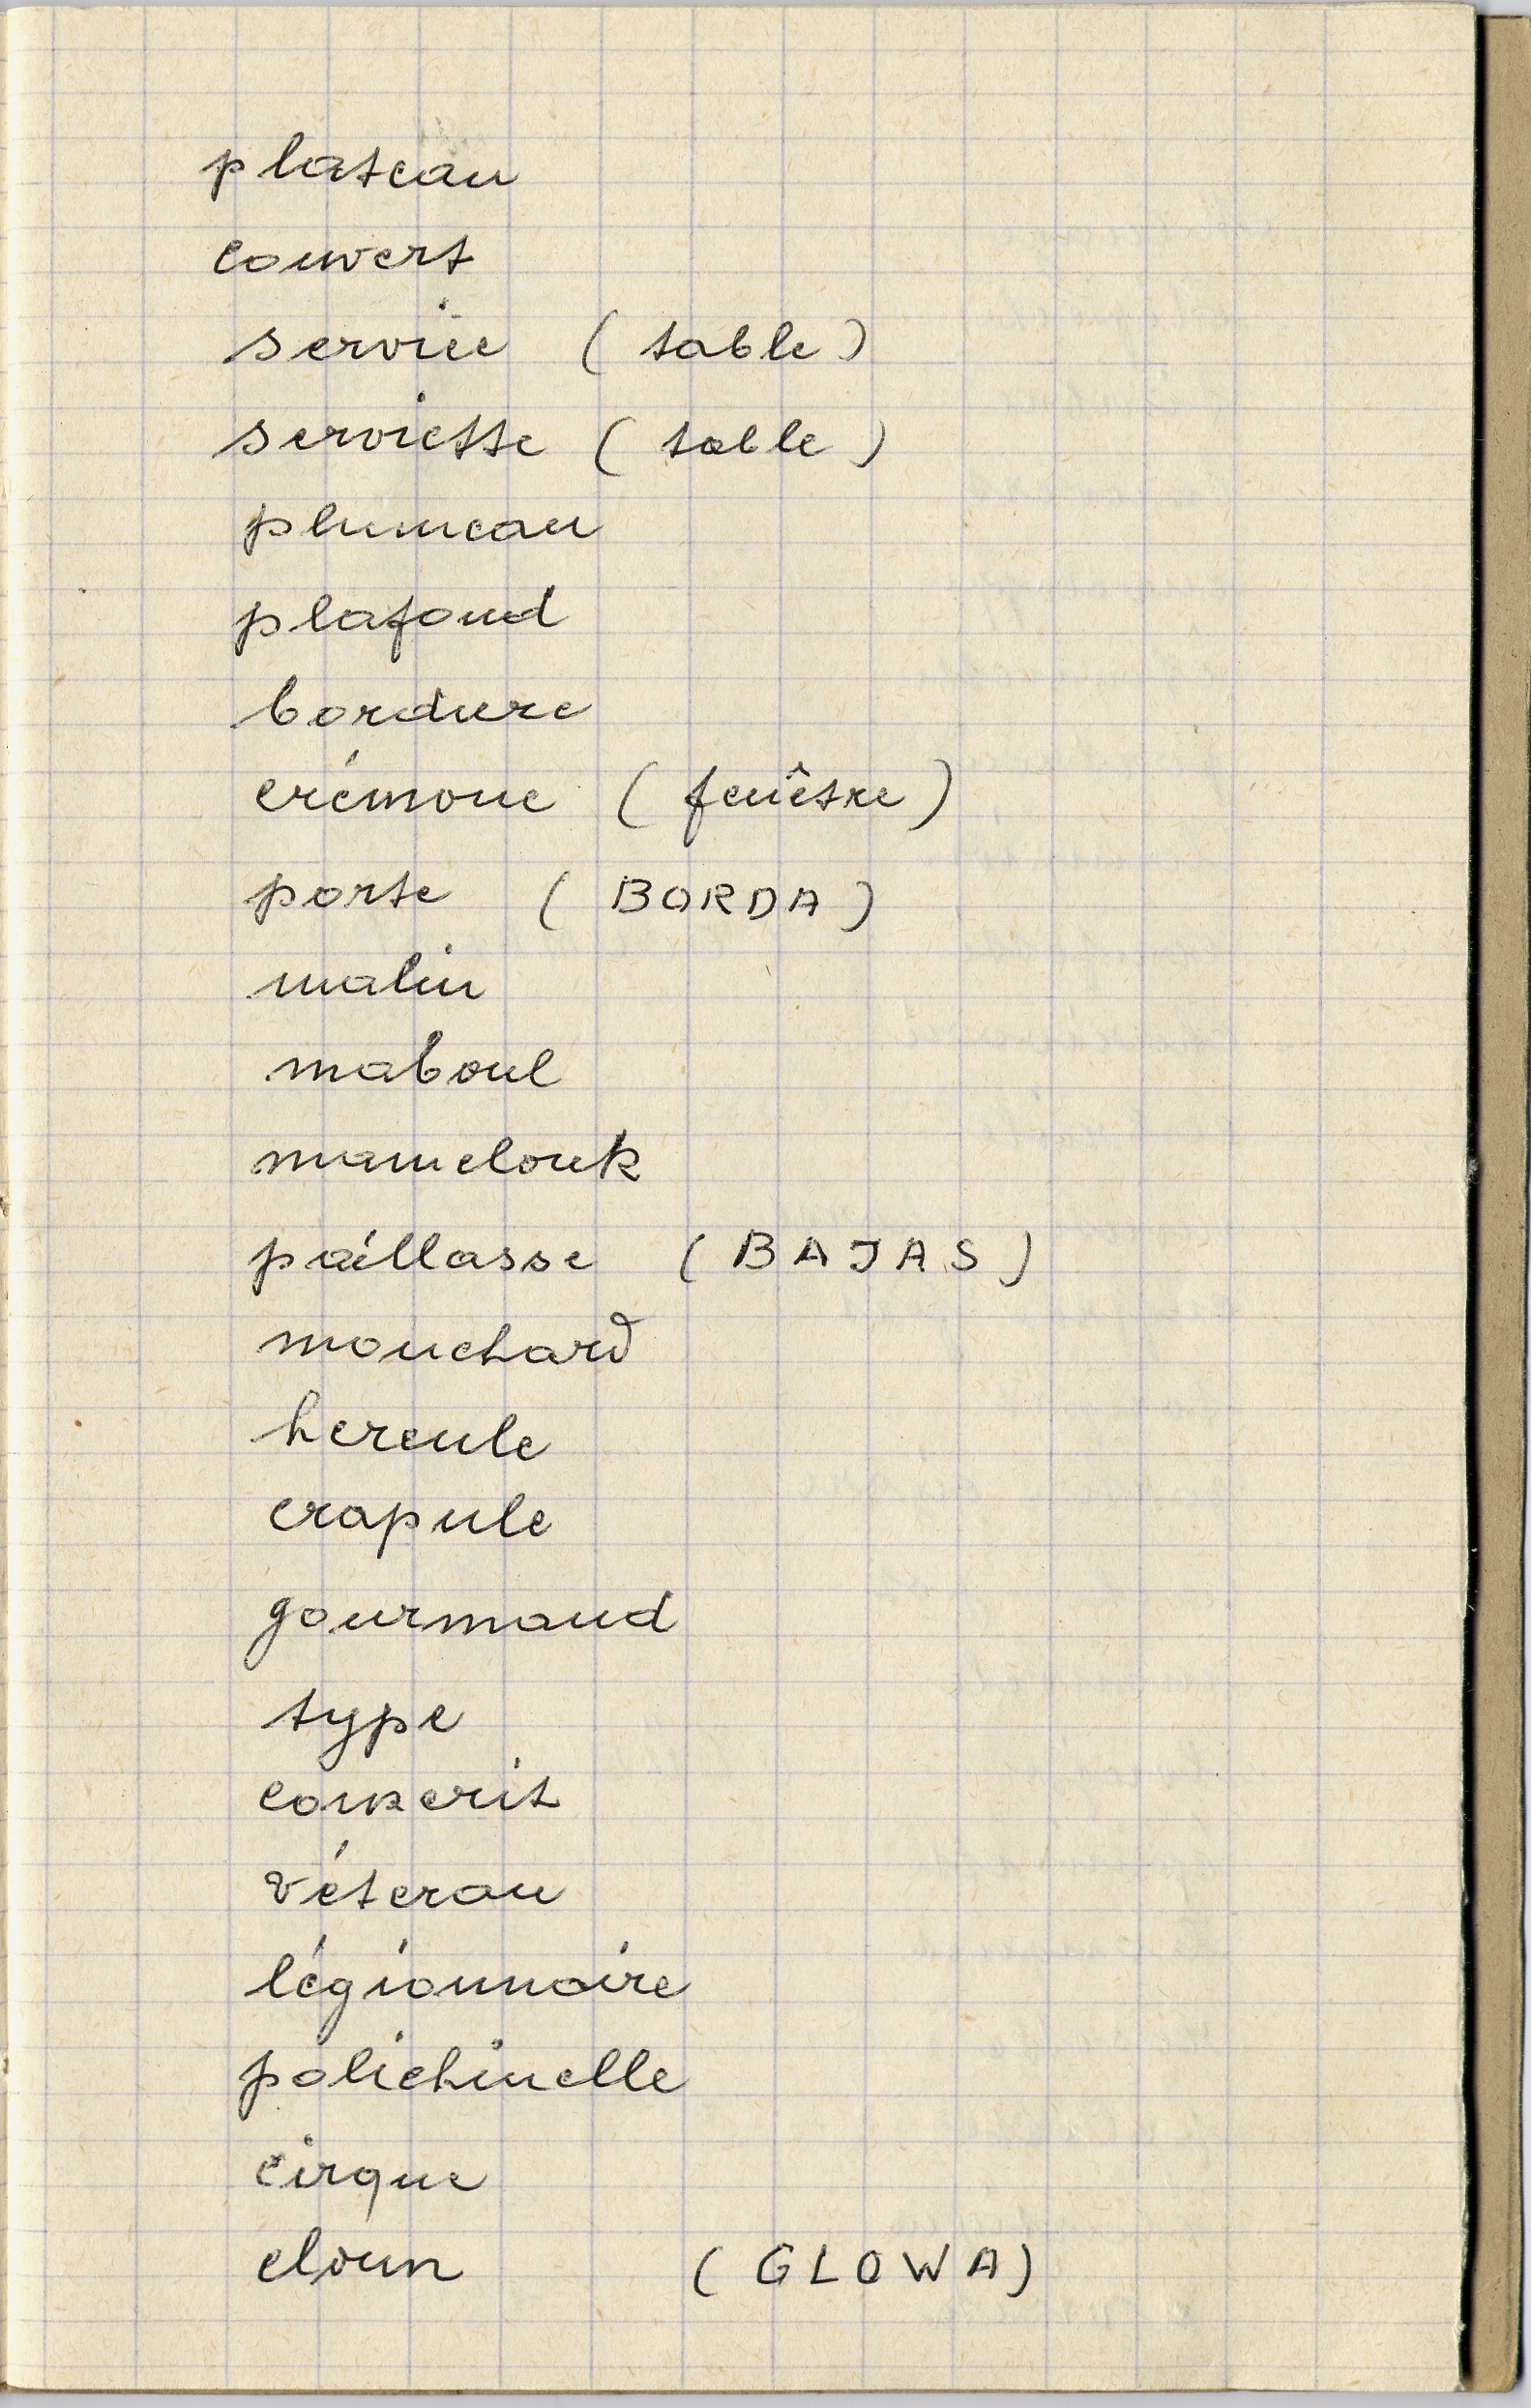 plateau
couvert
service ( table )
serviette ( table )
plumeau
plafond
bordure
crémone ( fenêtre )
porte ( BORDA )
malin
maboul
mamelouk
paillasse ( BAJAS )
mouchard
hercule
crapule
gourmand
type
conscrit
véteran
légionnaire
polichinelle
cirque
cloun ( GLOWA )